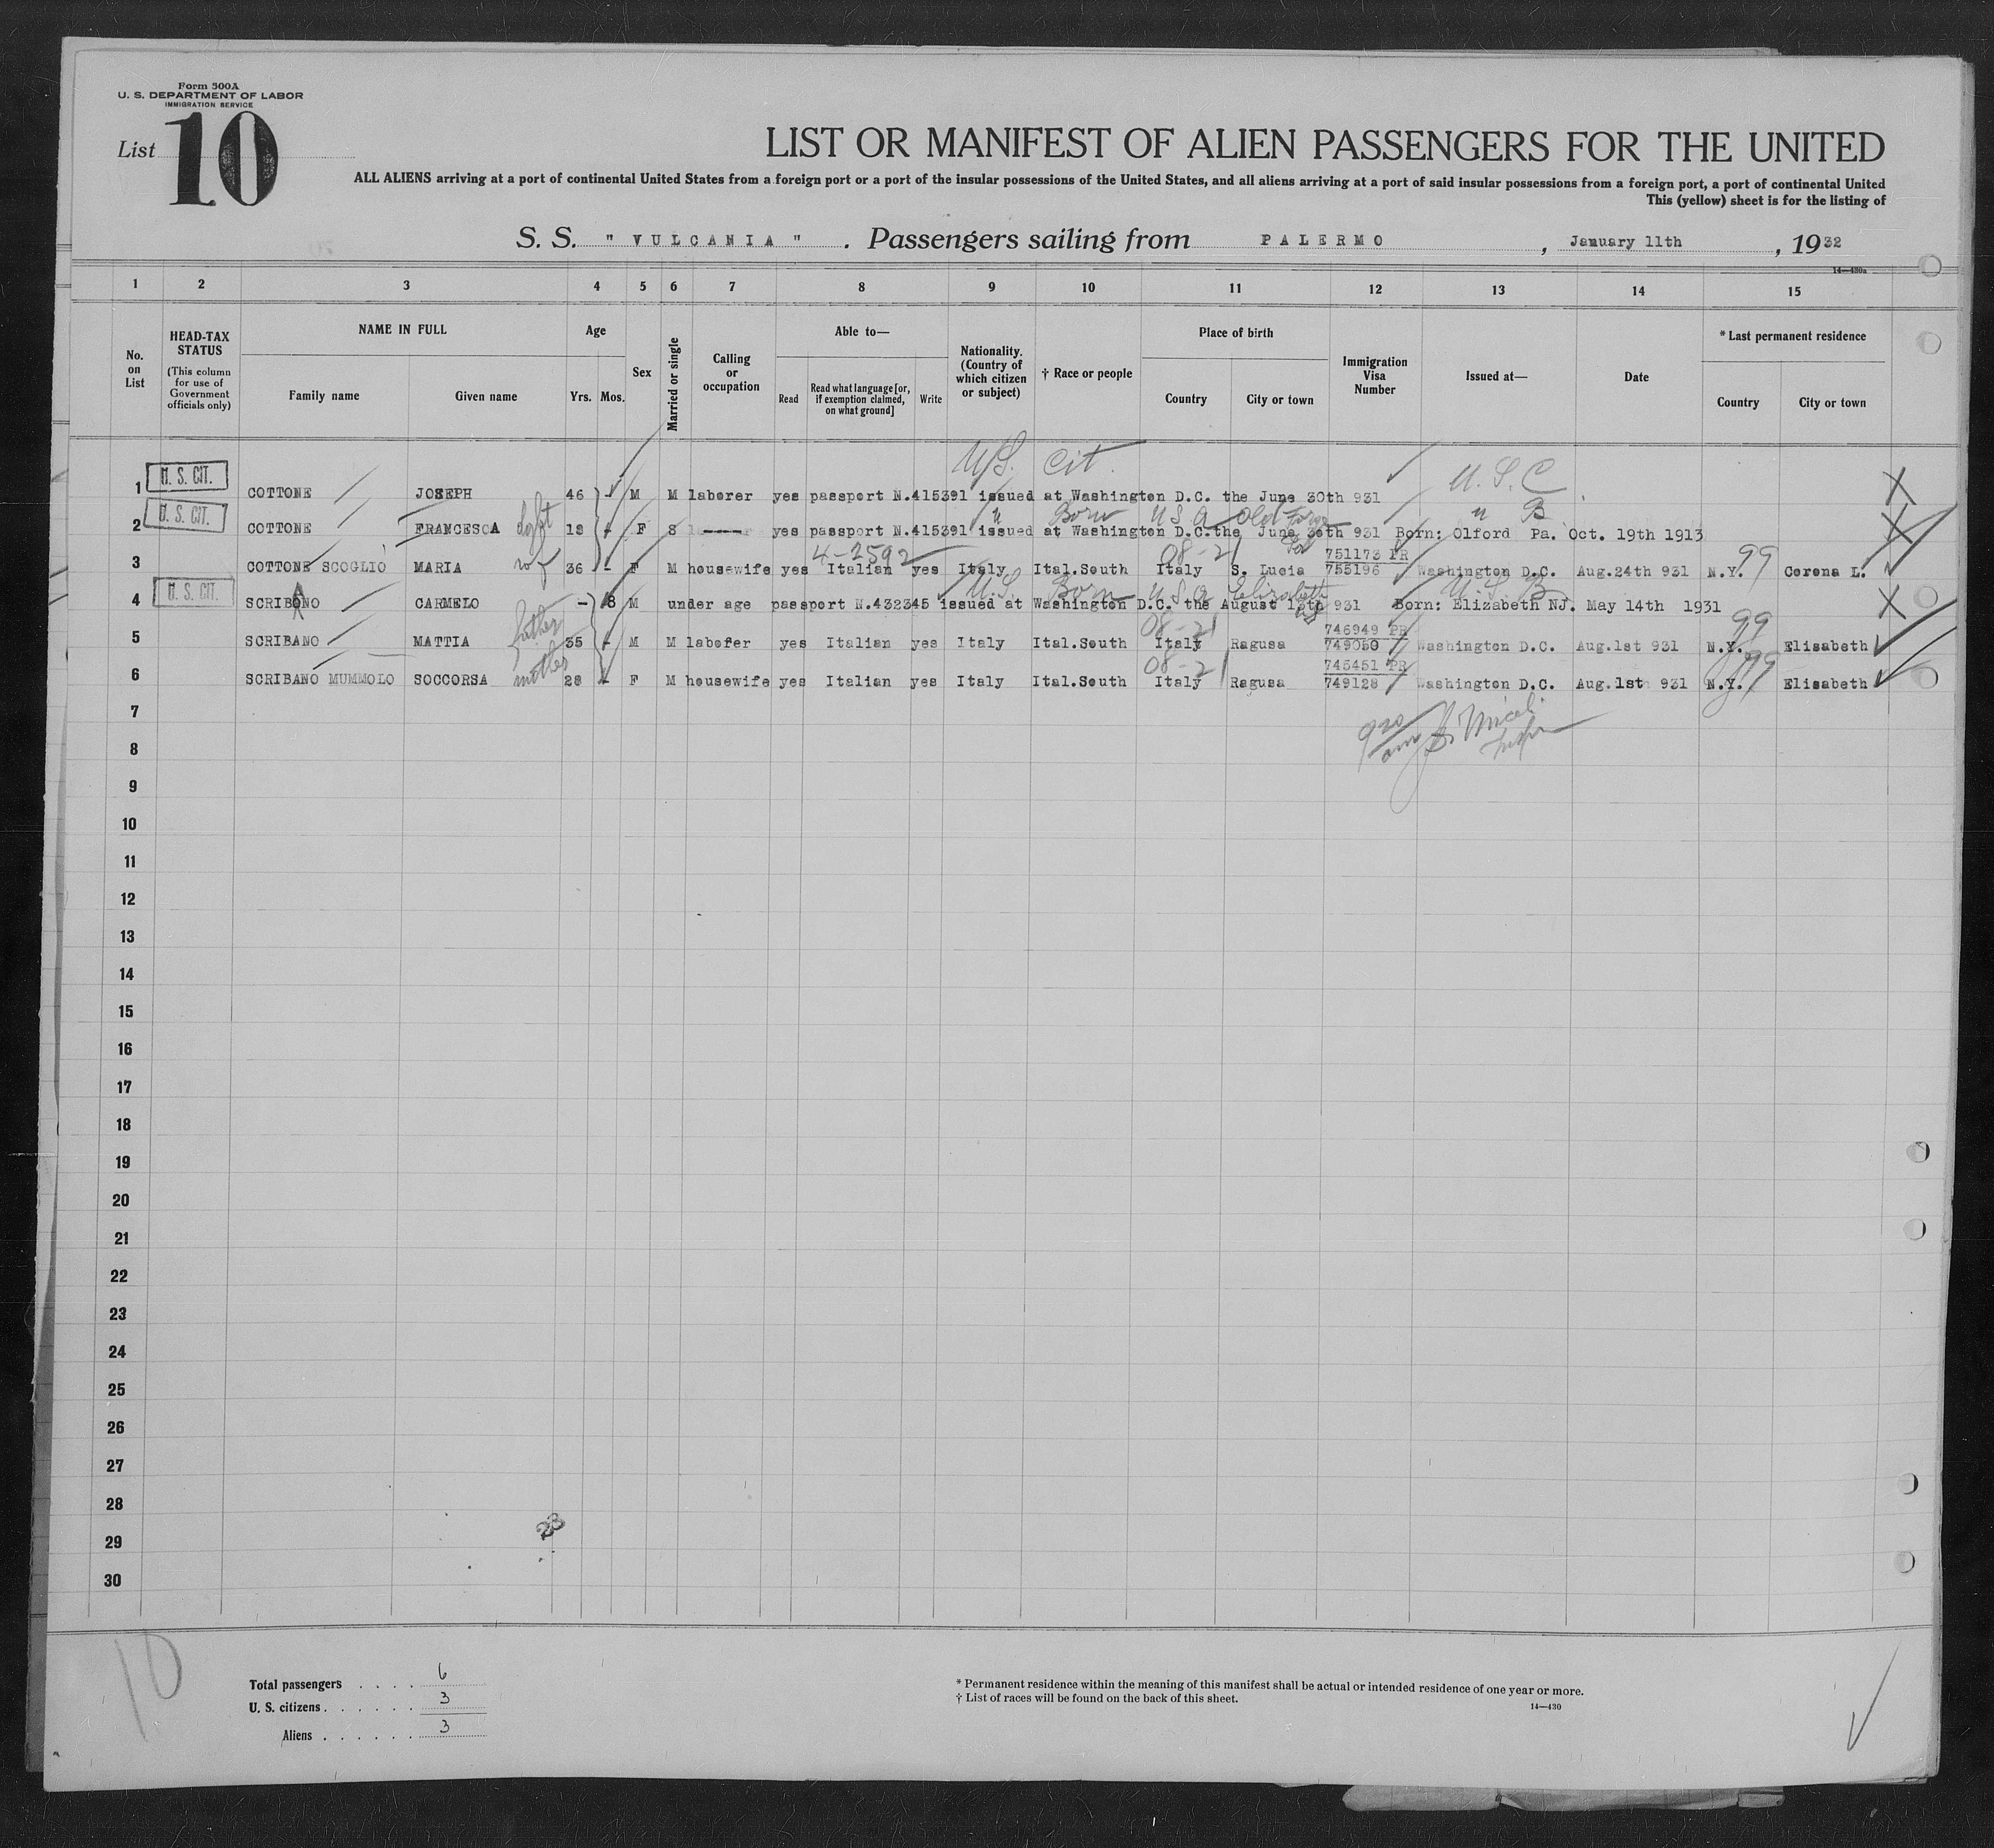 Form 500A
U. S. DEPARTMENT OF LABOR
IMMIGRATION SERVICE
List 10
LIST OR MANIFEST OF ALIEN PASSENGERS FOR THE UNITED
ALL ALIENS arriving at a port of continental United States from a foreign port or a port of the insular possessions of the United States, and all aliens arriving at a port of said insular possessions from a foreign port, a port of continental United
This (yellow) sheet is for the listing of
S. S. " VULCANIA " . Passengers sailing from PALERMO , January 11th , 1932
14—430a
1 2 3 4 5 6 7 8 9 10 11 12 13 14 15
No. on List
HEAD-TAX STATUS
(This column for use of Government officials only)
NAME IN FULL
Family name Given name
Age
Yrs. Mos.
Sex
Married or single
Calling or occupation
Able to—
Read
Read what language [or, if exemption claimed, on what ground]
Write
Nationality. (Country of which citizen or subject)
† Race or people
Place of birth
Country City or town
Immigration Visa Number
Issued at—
Date
* Last permanent residence
Country City or town
U.S. Cit. U.S.C
1 U. S. CIT. COTTONE JOSEPH 46 - M M laborer yes passport N.415391 issued at Washington D.C. the June 30th 931
" Born USA Old Forge " B
2 U. S. CIT. COTTONE FRANCESCA dght 18 - F S ---- yes passport N.415391 issued at Washington D.C.the June 30th 931 Born: Olford Pa. Oct. 19th 1913
4-2592 08-21 751173 PR 99
3 COTTONE SCOGLIO MARIA wf 36 - F M housewife yes Italian yes Italy Ital.South Italy S. Lucia 755196 Washington D.C. Aug.24th 931 N.Y. Corona L.
U.S. Born USA Elizabeth NJ U.S. B
4 U. S. CIT. SCRIBANO CARMELO - 8 M under age passport N.432345 issued at Washington D.C. the August 931 Born: Elizabeth NJ. May 14th 1931
08-21 746949 PR 99
5 SCRIBANO MATTIA father 35 - M M laborer yes Italian yes Italy Ital.South Italy Ragusa 749050 Washington D.C. Aug.1st 931 N.Y. Elisabeth
08-21 745451 PR 99
6 SCRIBANO MUMMOLO SOCCORSA mother 28 - F M housewife yes Italian yes Italy Ital.South Italy Ragusa 749128 Washington D.C. Aug.1st 931 N.Y. Elisabeth
7
8
9
10
11
12
13
14
15
16
17
18
19
20
21
22
23
24
25
26
27
28
29
30
23
10
Total passengers . . . . 6
U. S. citizens . . . . . . 3
Aliens . . . . . . 3
* Permanent residence within the meaning of this manifest shall be actual or intended residence of one year or more.
† List of races will be found on the back of this sheet.
14—430